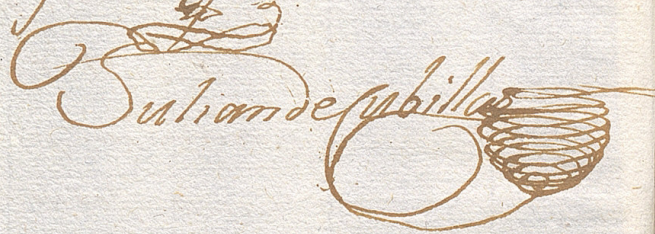 Julian de Cubillas